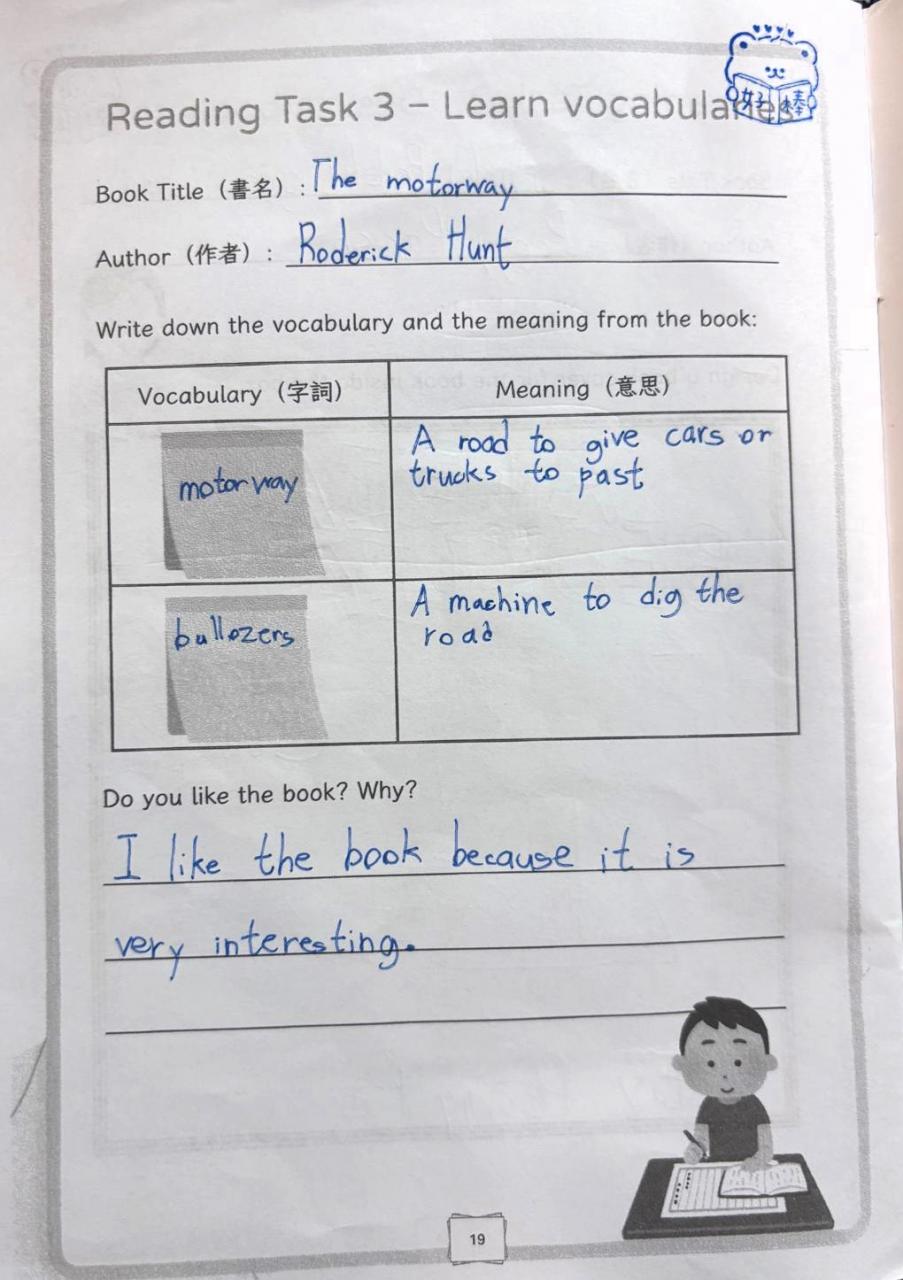 Reading Task 3 – Learn vocabularies
好棒
Book Title (書名) : The motorway
Author (作者) : Roderick Hunt
Write down the vocabulary and the meaning from the book:
Vocabulary (字詞)
Meaning (意思)
motorway
A road to give cars or
trucks to past
bullozers
A machine to dig the
road
Do you like the book? Why?
I like the book because it is
very interesting.
19